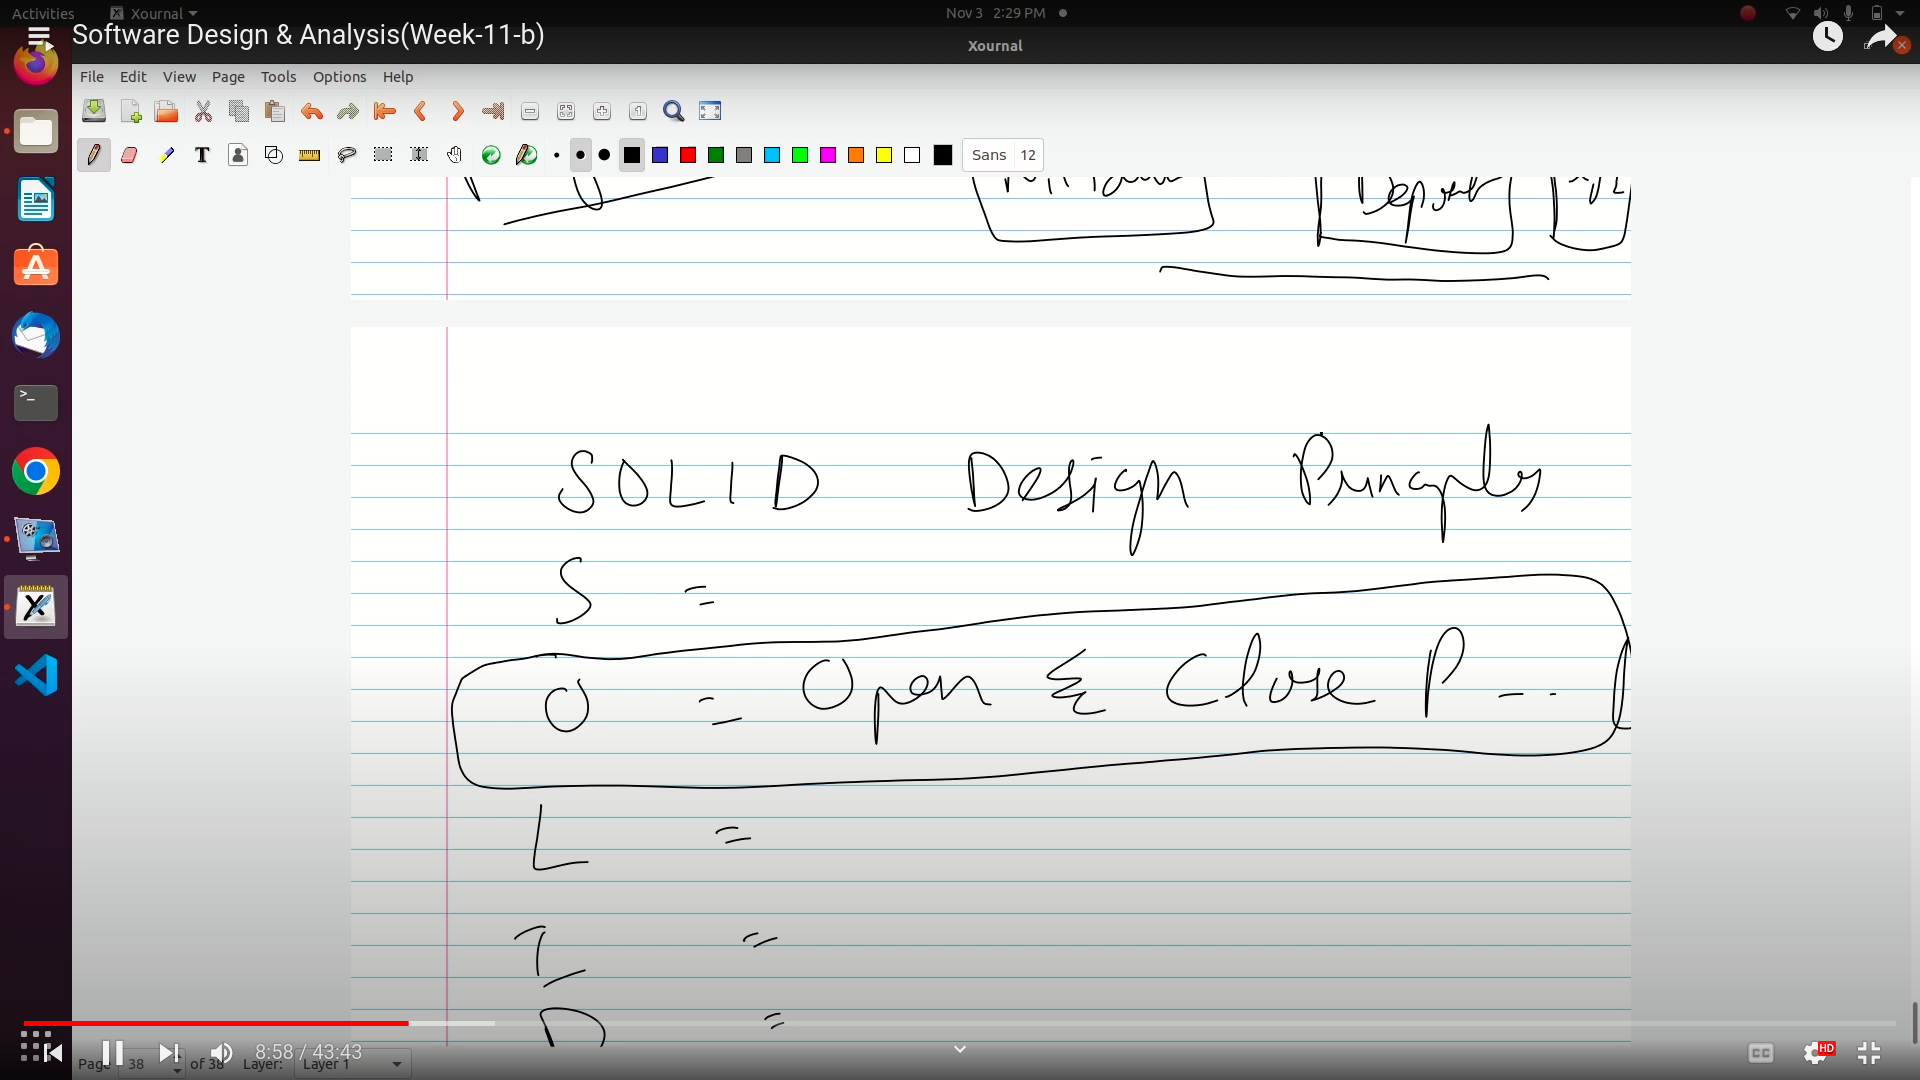 Activities Xournal Nov 3 2:29 PM
Software Design & Analysis(Week-11-b)
Xournal
File Edit View Page Tools Options Help
Sans 12
SOLID Design
S =
O = Open & Close P
L =
I =
D =
8:58 / 43:43
CC HD
Page 38 of 38 Layer: Layer 1